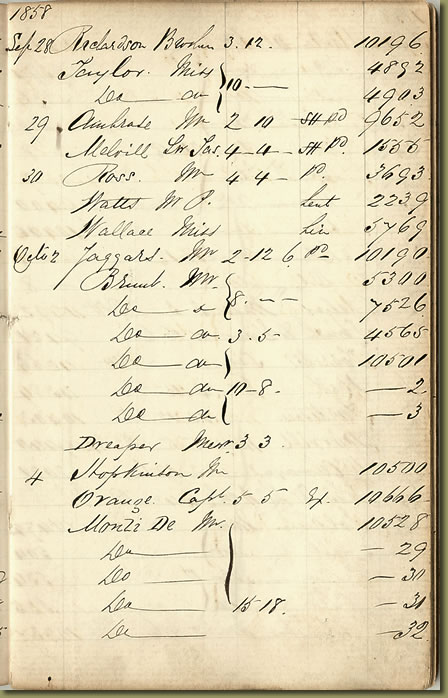 1858
Sep 28 Richardson 3. 12. 10196
Taylor. Miss 10 — 4892
Do — do 4903
29 Ambrose Mr 2 10 9652
Melvill Jas. 4 — 4 — 1555
30 Ross. Mr 4 4 — Pd. 3693
Watts W P. Lent 2239
Wallace Miss 5769
Octo 2 Jaggars. Mr 2 - 12 6 Pd 10190
Brunt. Mr. 5300
Do 8. — — 7526
Do — do 3. 5 - 4565
Do — do 10501
Do — do 10 - 8. — 2
Do — do — 3
Dreaper 3 3.
4 Hopkinson Mr 10500
Orange. Capt. 5 5 10666
Monti De Mr. 10528
Do — — 29
Do — — 30
Do — 15 18. — 31
Do — — 32